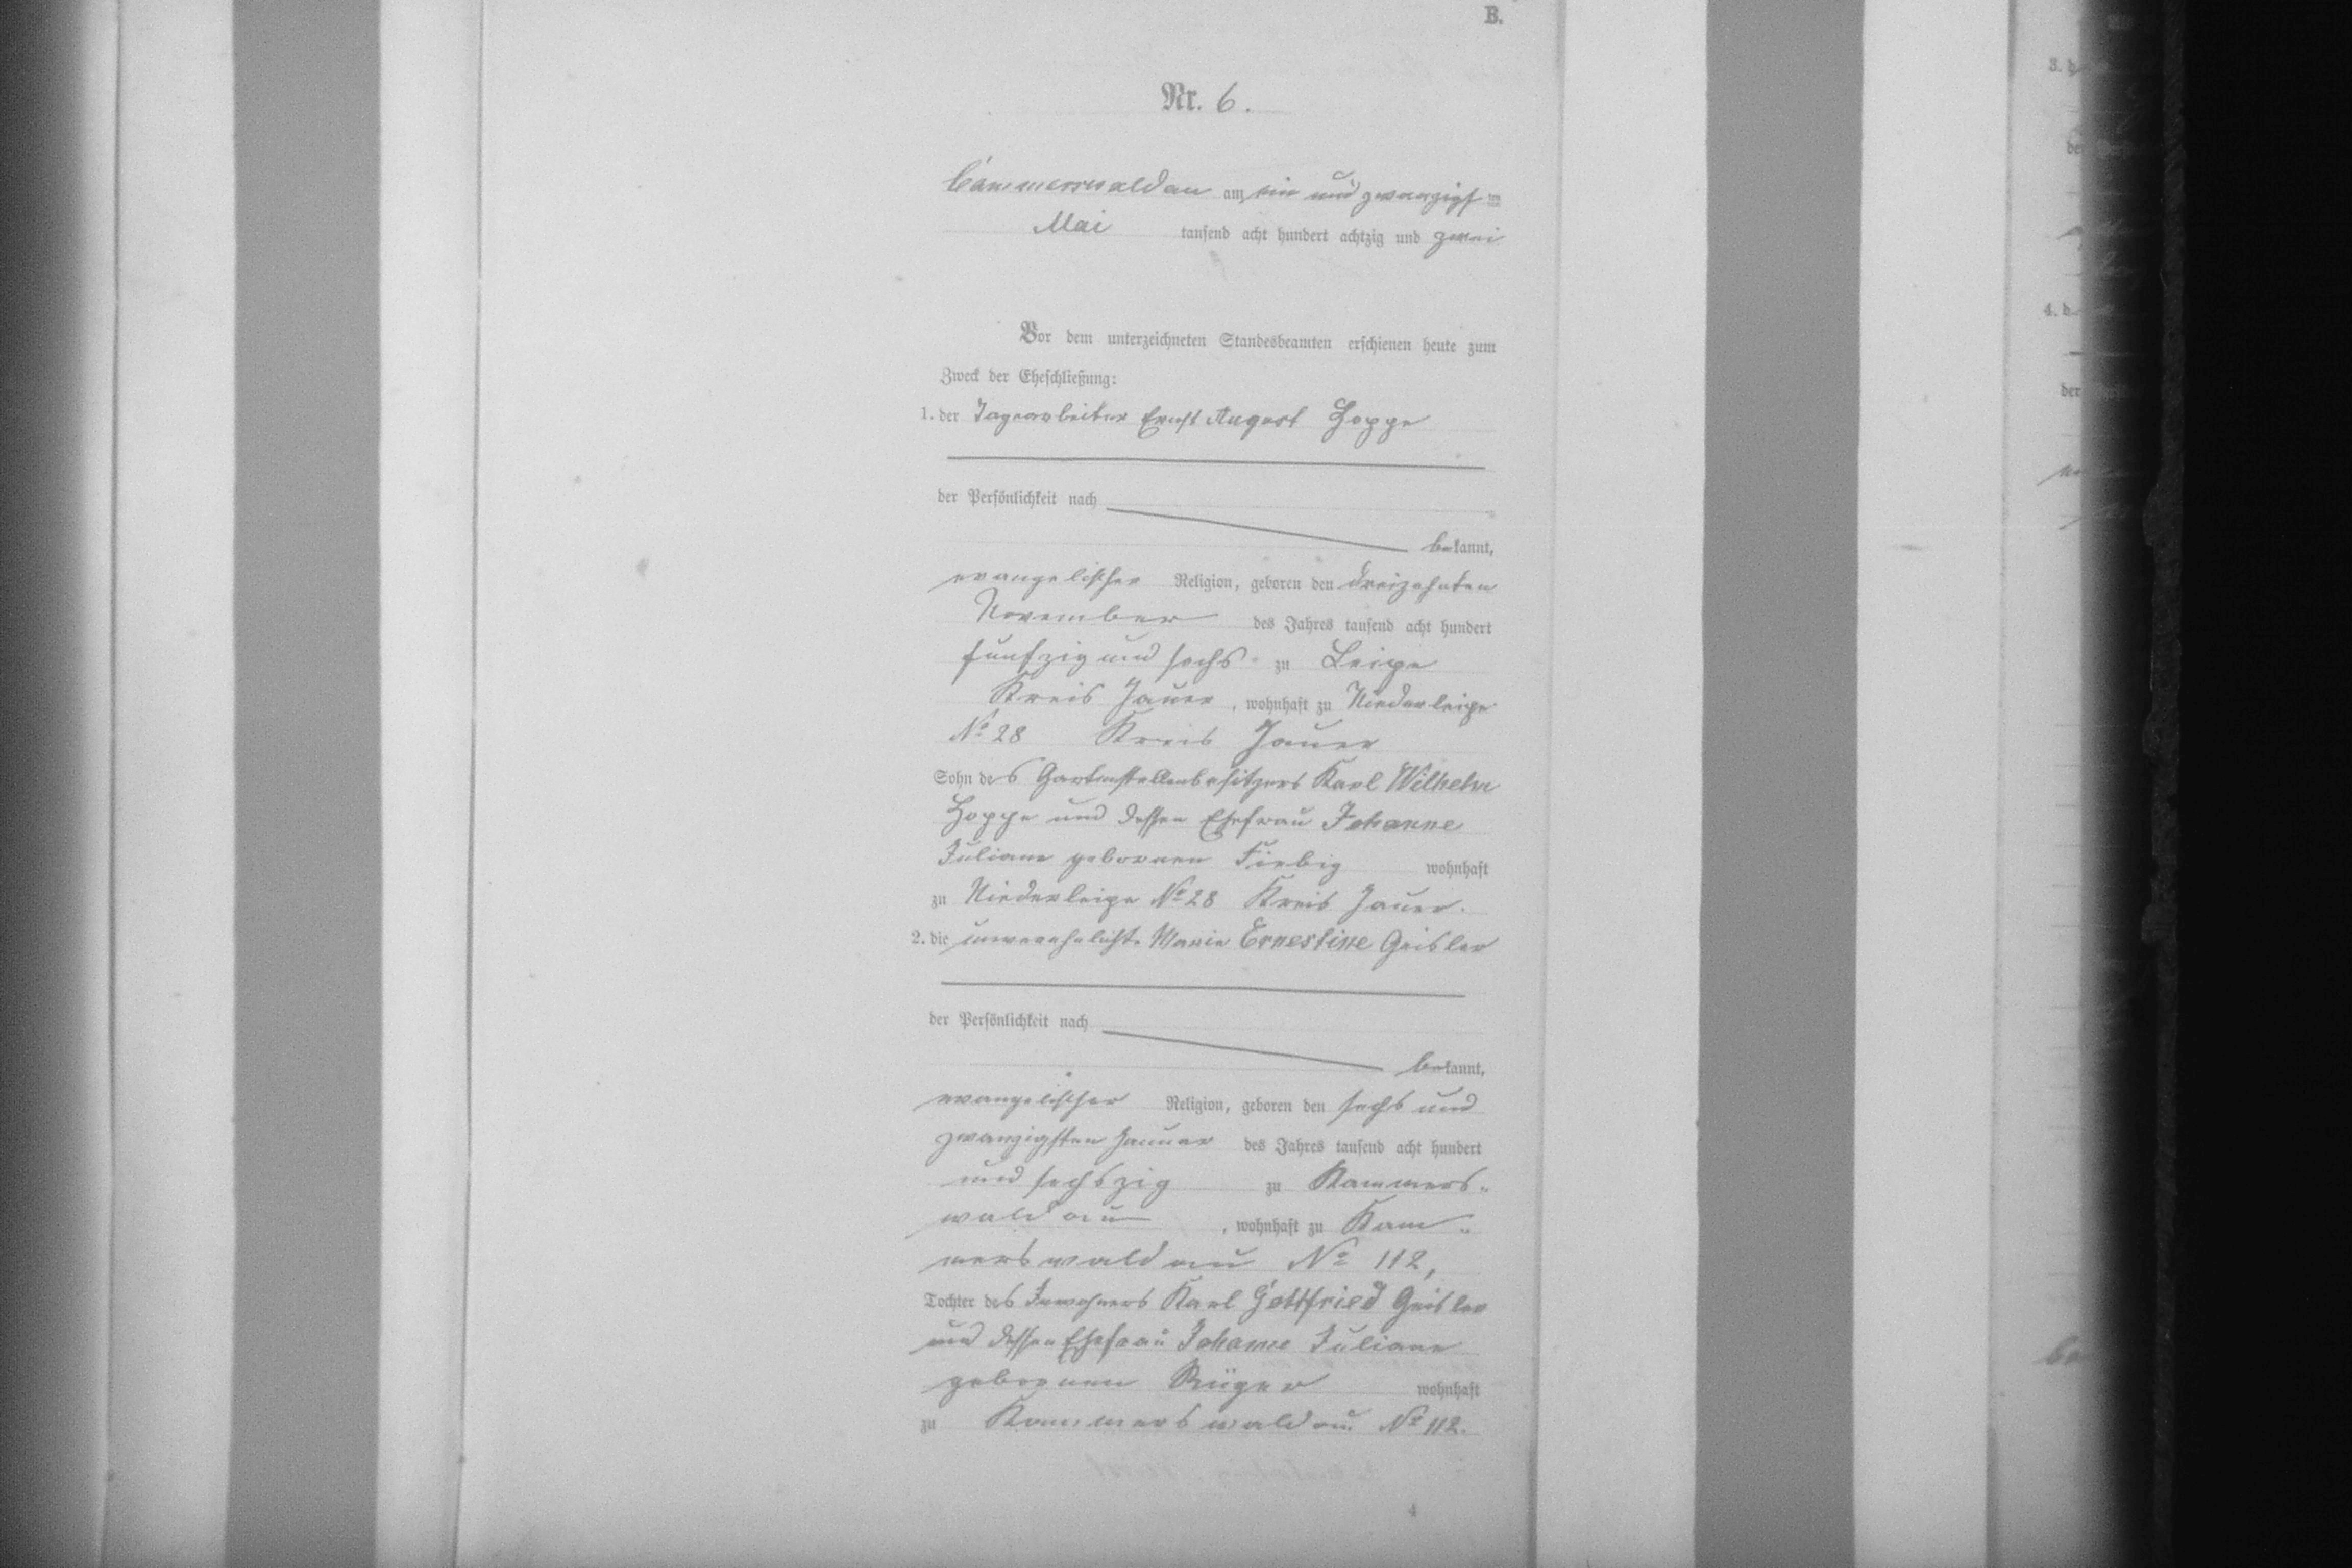 B.
Nr. 6.
Cammerswaldau am ein und zwanzigsten
Mai tausend acht hundert achtzig und zwei
Vor dem unterzeichneten Standesbeamten erschienen heute zum
Zweck der Eheschließung:
1. der Tagearbeiter Ernst August Hoppe
der Persönlichkeit nach
bekannt,
evangelischer Religion, geboren den dreizehnten
November des Jahres tausend acht hundert
fünfzig und sechs zu Leipe
Kreis Jauer, wohnhaft zu Niederleipe
No 28 Kreis Jauer
Sohn des Gartenstellenbesitzers Karl Wilhelm
Hoppe und dessen Ehefrau Johanne
Juliane gebornen Fiebig wohnhaft
zu Niederleipe No 28 Kreis Jauer.
2. die unverehelichte Marie Ernestine Geisler
der Persönlichkeit nach
bekannt,
evangelischer Religion, geboren den sechs und
zwanzigsten Januar des Jahres tausend acht hundert
und sechszig zu Kammers-
waldau, wohnhaft zu Kam-
merswaldau No 112,
Tochter des Inwohners Karl Gottfried Geisler
und dessen Ehefrau Johanne Juliane
gebornen Rüger wohnhaft
zu Kammerswaldau No 112.
4
3.
4.
der